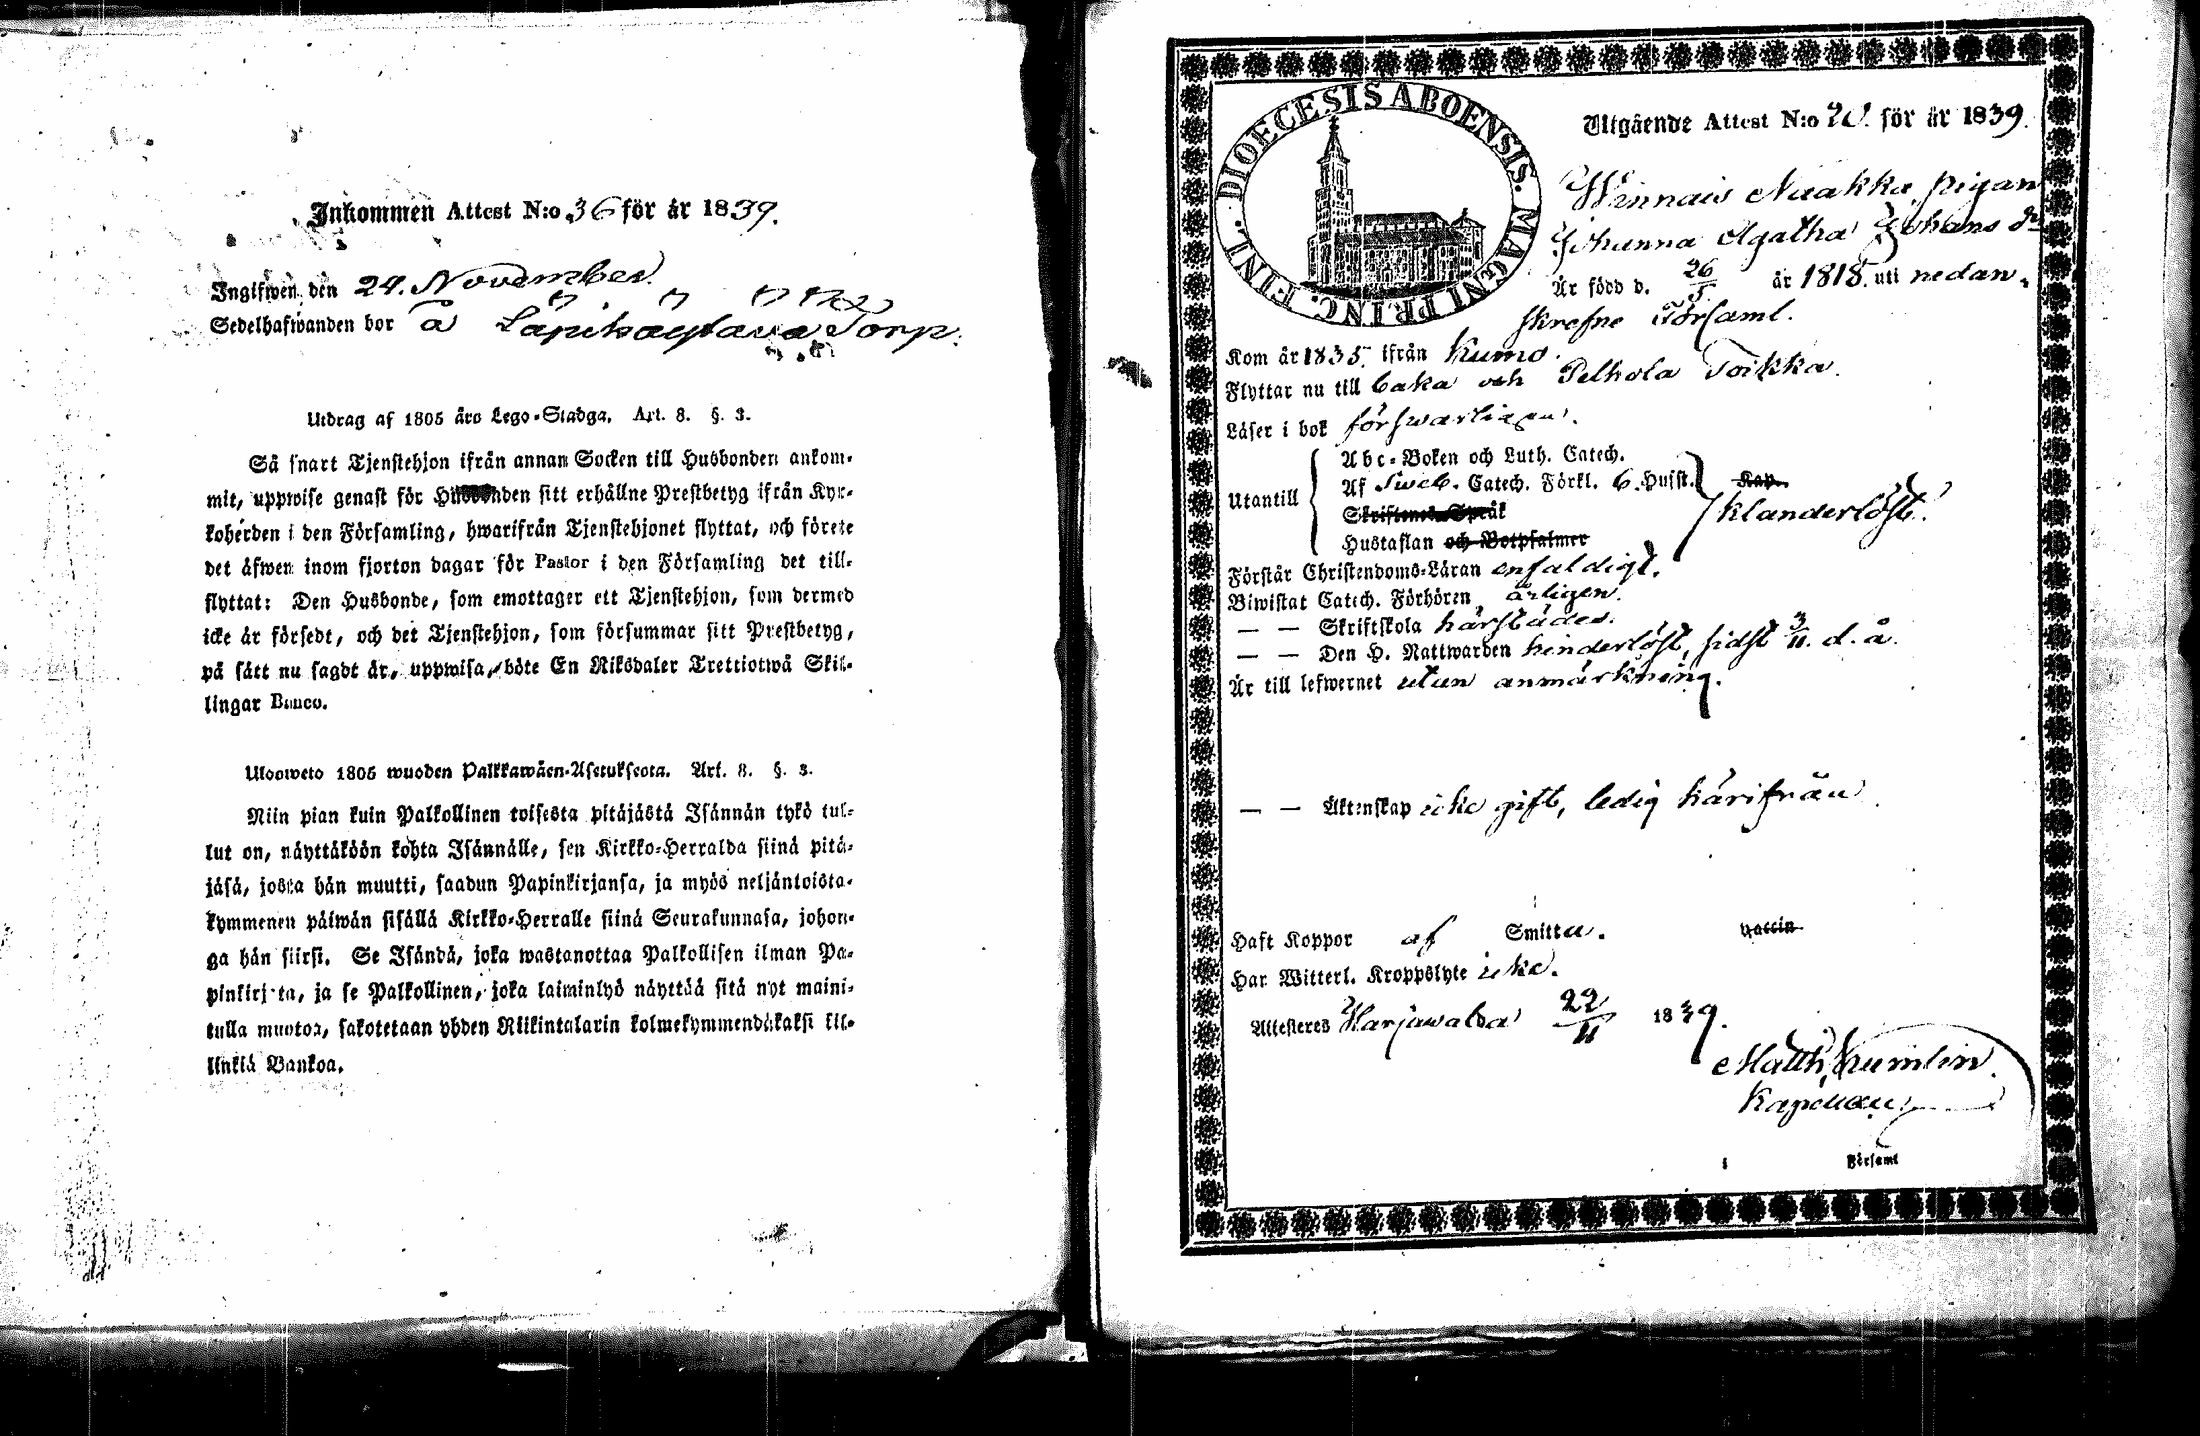 Inkommen Attest N:o 36 för år 1839.
Ingifwen den 24. November.
Sedelhafwanden bor å Torp.
Utdrag af 1805 års Lego-Stadga. Art. 8. §. 3.
Så snart Tjenstehjon ifrån annan Socken till Husbonden ankom-
mit, uppwise genast för Husbonden sitt erhållne Prestbetyg ifrån Kyr-
koherden i den Församling, hwarifrån Tjenstehjonet flyttat, och förete
det äfwen inom fjorton dagar för Pastor i den Församling det till-
flyttat: Den Husbonde, som emottager ett Tjenstehjon, som dermed
icke är försedt, och det Tjenstehjon, som försummar sitt Prestbetyg,
på sätt nu sagdt är, uppwisa, böte En Riksdaler Trettiotwå Skil-
lingar Banco.
Ulosweto 1805 wuoden Palkkawäen-Asetuksesta. Art. 8. §. 3.
Niin pian kuin Palkollinen toisesta pitäjästä Isännän tykö tul-
lut on, näyttäköön kohta Isännälle, sen Kirkko-Herralda siinä pitä-
jäsä, josta hän muutti, saadun Papinkirjansa, ja myös neljäntoista-
kymmenen päiwän sisällä Kirkko-Herralle siinä Seurakunnasa, johon-
ga hän siirsi. Se Isändä, joka wastanottaa Palkollisen ilman Pa-
pinkirjata, ja se Palkollinen, joka laiminlyö näyttää sitä nyt maini-
tulla muotoa, sakotetaan yhden Riikintalarin kolmekymmendäkaksi kil-
linkiä Bankoa.
DIOECESIS ABOENSIS. MAGNI PRINC. FINL.
Utgående Attest N:o för år 1839.
Winnais Naakka pigan
Johanna Agatha Johans dr
Är född d. 26/5 år 1818. uti nedan-
skrefne Församl.
Kom år 1835. ifrån Kumo.
Flyttar nu till och Toikka.
Läser i bok förswarligen.
Utantill
Abc-Boken och Luth. Catech.
Af Sweb. Catech. Förkl. 6. Hufst. Kap.
Skriftenes Språk
Hustaflan och Botpsalmer
klanderlöst.
Förstår Christendoms-Läran enfaldigt.
Biwistat Catech. Förhören årligen.
— — Skriftskola härstädes.
— — Den H. Nattwarden hinderlöst, sidst 3/11. d. å.
Är till lefwernet utan anmärkning.
— — Äktenskap icke gift, ledig härifrån.
Haft Koppor af Smitta. vaccin
Har Witterl. Kroppslyte icke.
Attesteres Harjawalda 22/11 1839.
Matth. Humlin.
Kapellan
i Församl